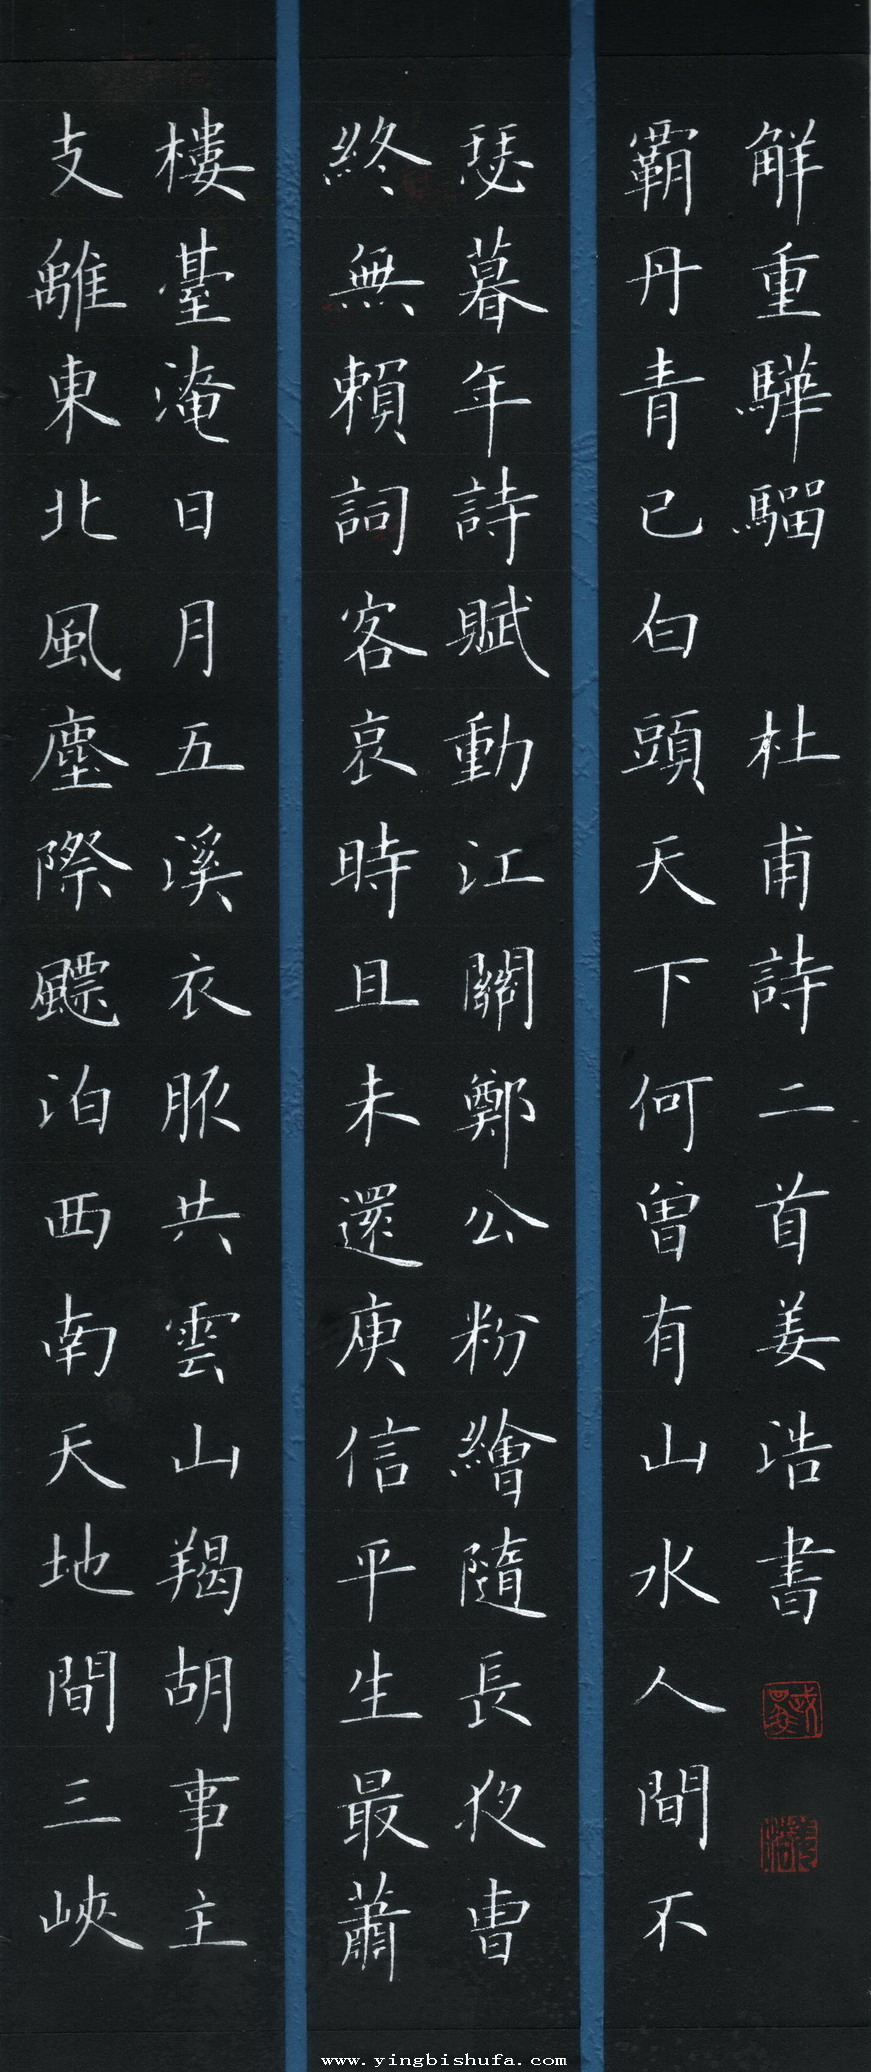 支離東北風塵際飃泊西南天地間三峽
樓臺淹日月五溪衣服共雲山羯胡事主
終無賴詞客哀時且未還庾信平生最蕭
瑟暮年詩賦動江關鄭公粉繪隨長夜曹
霸丹青已白頭天下何曾有山水人間不
觧重驊騮 杜甫詩二首姜浩書
www.yingbishufa.com